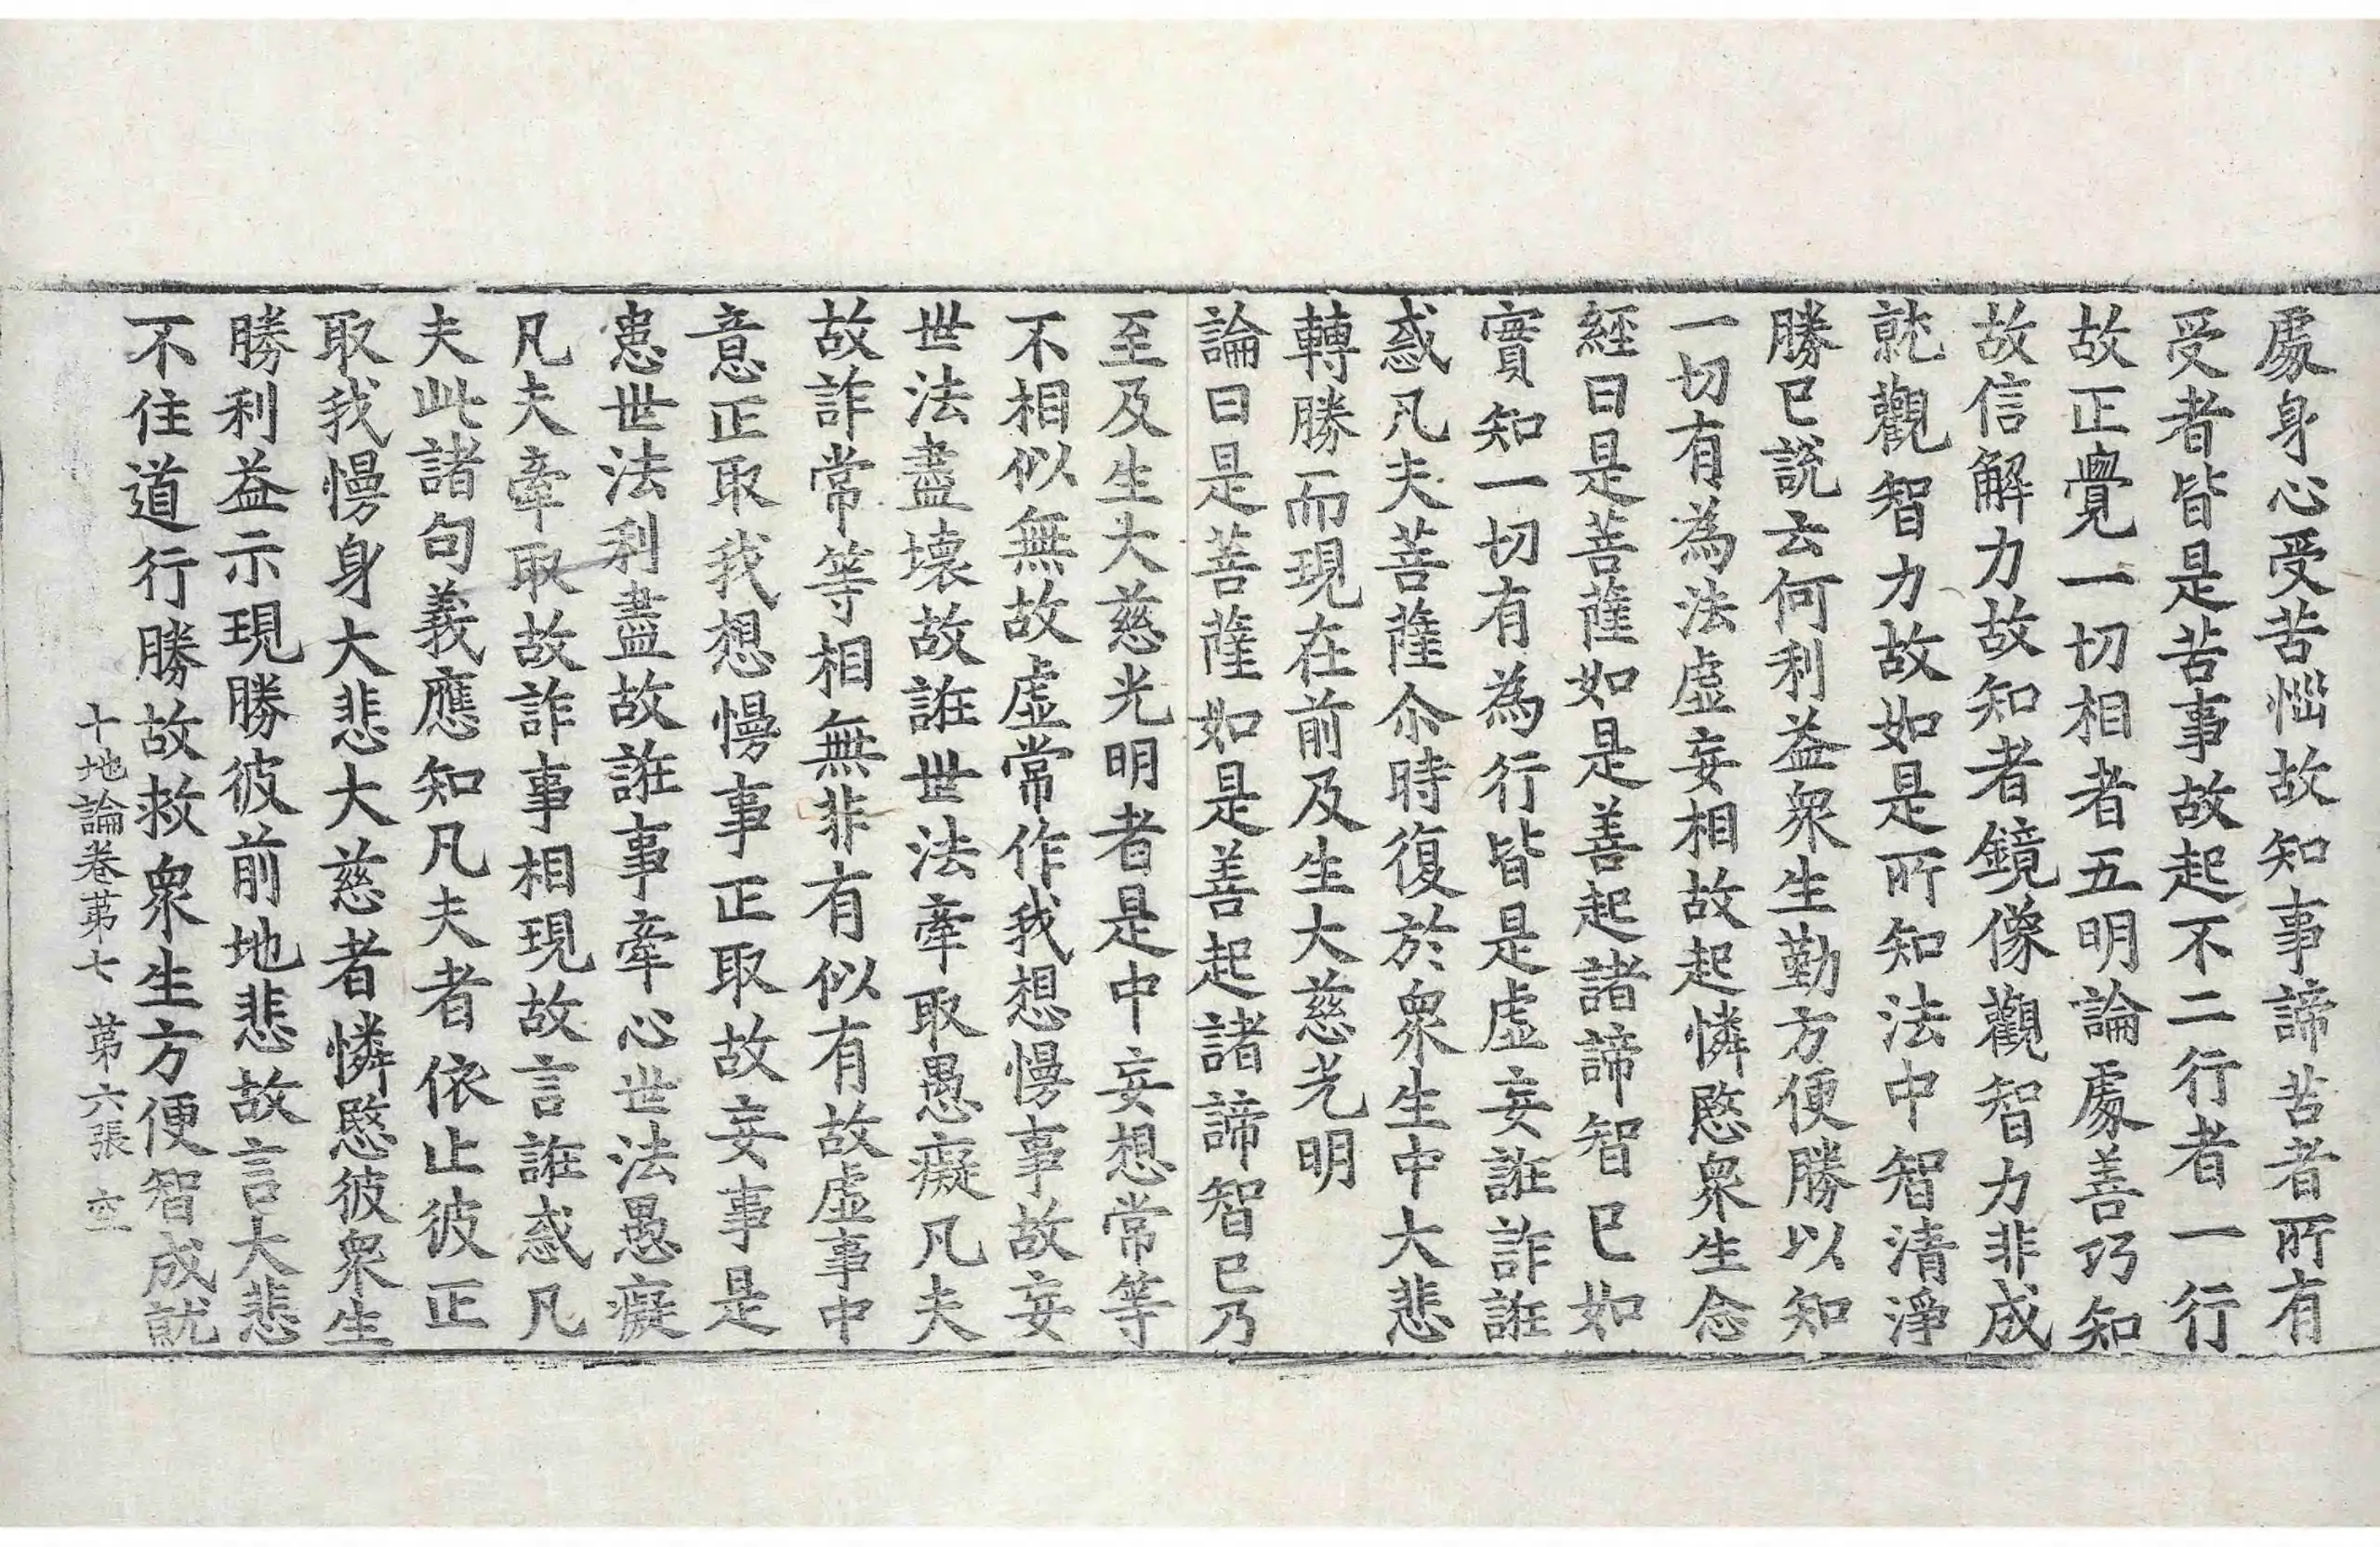 處身心受苦惱故知事諦苦者所有
受者皆是苦事故起不二行者一行
故正覺一切相者五明論處善巧知
故信解力故知者鏡像觀智力非成
就觀智力故如是所知法中智清淨
勝已說云何利益衆生勤方便勝以知
一切有為法虛妄相故起憐愍衆生念
經曰是菩薩如是善起諸諦智已如
實知一切有為行皆是虛妄誑詐誑
惑凡夫菩薩尒時復於衆生中大悲
轉勝而現在前及生大慈光明
論曰是菩薩如是善起諸諦智已乃
至及生大慈光明者是中妄想常等
不相似無故虛常作我想慢事故妄
世法盡壞故誑世法牽取愚癡凡夫
故詐常等相無非有似有故虛事中
意正取我想慢事正取故妄事是
患世法利盡故誑事牽心世法愚癡
凡夫牽取故詐事相現故言誑惑凡
夫此諸句義應知凡夫者依止彼正
取我慢身大悲大慈者憐愍彼衆生
勝利益示現勝彼前地悲故言大悲
不住道行勝故救衆生方便智成就
十地論卷第七 第六張 空